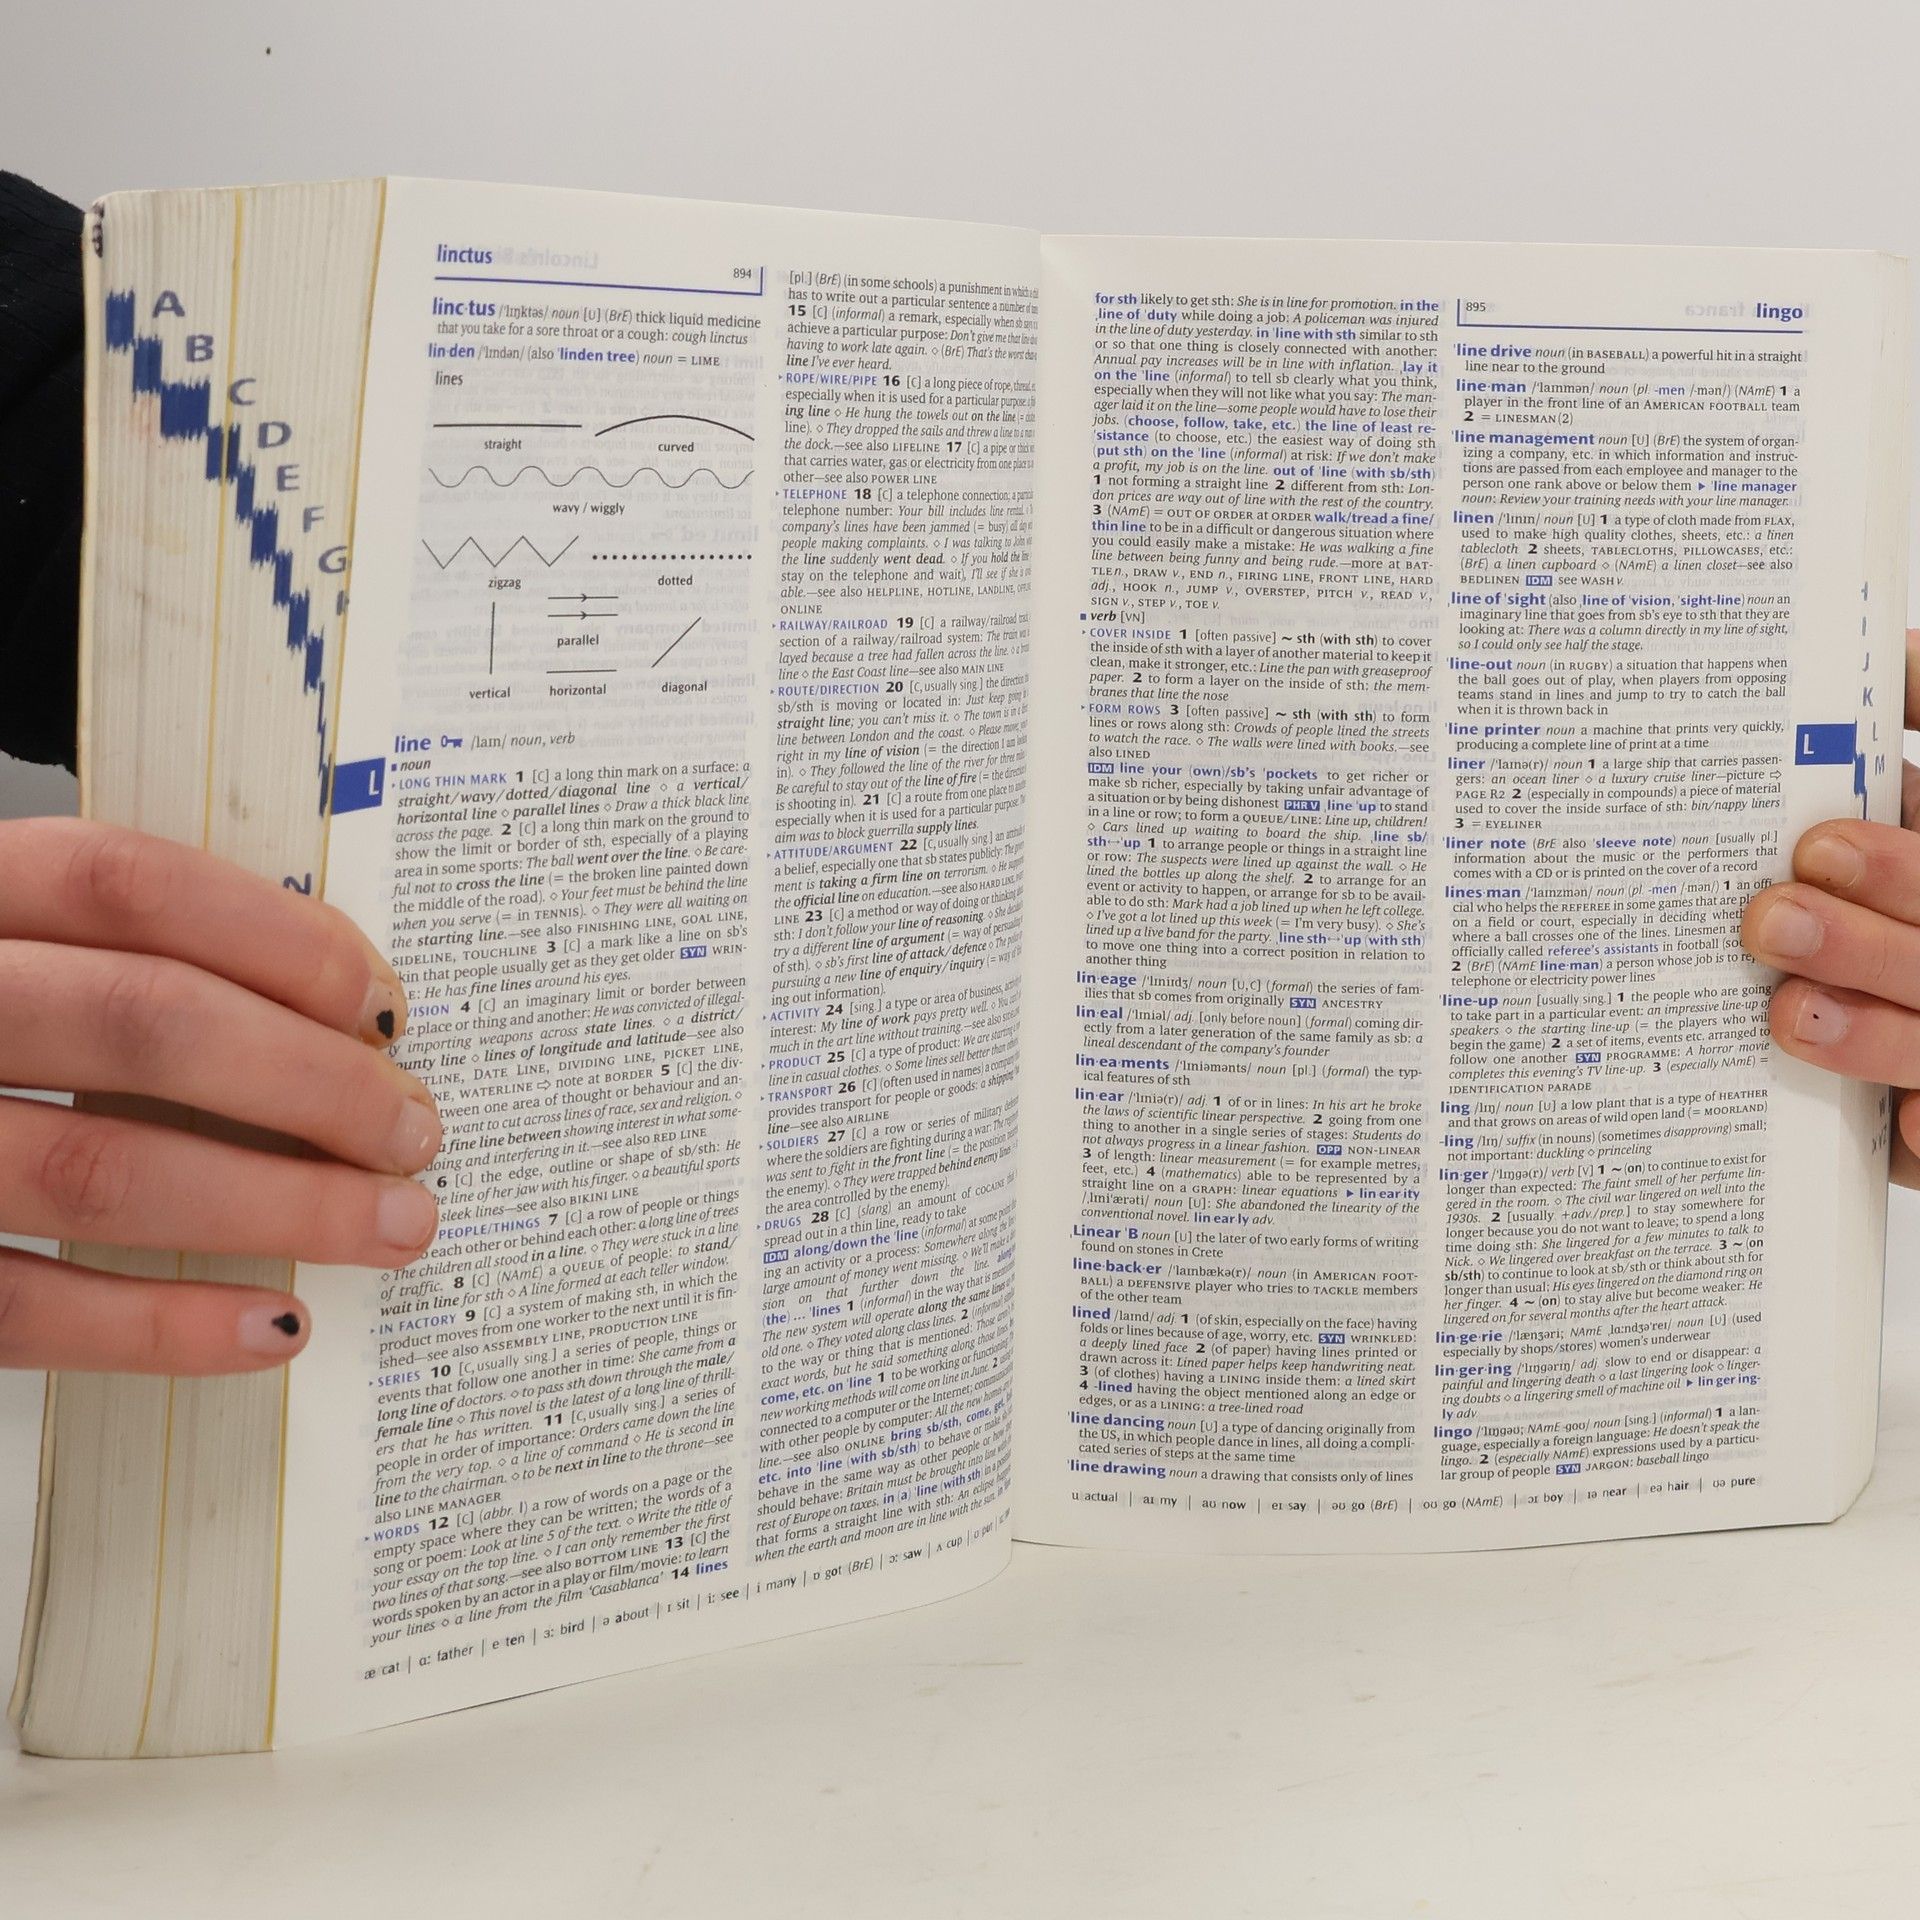 A
B
C
D
E
F
G
N
L
linctus
894
linc·tus /ˈlɪŋktəs/ noun [U] (BrE) thick liquid medicine
that you take for a sore throat or a cough: cough linctus
lin·den /ˈlɪndən/ (also ˈlinden tree) noun = LIME
lines
straight curved
wavy / wiggly
zigzag dotted
parallel
vertical horizontal diagonal
line /laɪn/ noun, verb
■ noun
▸ LONG THIN MARK 1 [C] a long thin mark on a surface: a
straight/wavy/dotted/diagonal line ◇ a vertical/
horizontal line ◇ parallel lines ◇ Draw a thick black line
across the page. 2 [C] a long thin mark on the ground to
show the limit or border of sth, especially of a playing
area in some sports: The ball went over the line. ◇ Be care-
ful not to cross the line (= the broken line painted down
the middle of the road). ◇ Your feet must be behind the line
when you serve (= in TENNIS). ◇ They were all waiting on
the starting line.—see also FINISHING LINE, GOAL LINE,
SIDELINE, TOUCHLINE 3 [C] a mark like a line on sb's
skin that people usually get as they get older SYN WRIN-
E: He has fine lines around his eyes.
4 [C] an imaginary limit or border between
place or thing and another: He was convicted of illegal-
importing weapons across state lines. ◇ a district/
line ◇ lines of longitude and latitude—see also
DATE LINE, DIVIDING LINE, PICKET LINE,
WATERLINE ⇨ note at BORDER 5 [C] the div-
between one area of thought or behaviour and an-
want to cut across lines of race, sex and religion. ◇
a fine line between showing interest in what some-
doing and interfering in it.—see also RED LINE
6 [C] the edge, outline or shape of sb/sth: He
line of her jaw with his finger. ◇ a beautiful sports
sleek lines—see also BIKINI LINE
PEOPLE/THINGS 7 [C] a row of people or things
each other or behind each other: a long line of trees
◇ The children all stood in a line. ◇ They were stuck in a line
of traffic. 8 [C] (NAmE) a QUEUE of people: to stand/
wait in line for sth ◇ A line formed at each teller window.
▸ IN FACTORY 9 [C] a system of making sth, in which the
product moves from one worker to the next until it is fin-
ished—see also ASSEMBLY LINE, PRODUCTION LINE
▸ SERIES 10 [C, usually sing.] a series of people, things or
events that follow one another in time: She came from a
long line of doctors. ◇ to pass sth down through the male/
female line ◇ This novel is the latest of a long line of thrill-
ers that he has written. 11 [C, usually sing.] a series of
people in order of importance: Orders came down the line
from the very top. ◇ a line of command ◇ He is second in
line to the chairman. ◇ to be next in line to the throne—see
also LINE MANAGER
▸ WORDS 12 [C] (abbr. l) a row of words on a page or the
empty space where they can be written; the words of a
song or poem: Look at line 5 of the text. ◇ Write the title of
your essay on the top line. ◇ I can only remember the first
two lines of that song.—see also BOTTOM LINE 13 [C] the
words spoken by an actor in a play or film/movie: to learn
your lines ◇ a line from the film 'Casablanca' 14 lines
[pl.] (BrE) (in some schools) a punishment in which a
has to write out a particular sentence a number of
15 [C] (informal) a remark, especially when sb says
achieve a particular purpose: Don't give me that line
having to work late again. ◇ (BrE) That's the worst
line I've ever heard.
▸ ROPE/WIRE/PIPE 16 [C] a long piece of rope, thread,
especially when it is used for a particular purpose:
ing line ◇ He hung the towels out on the line (=
line). ◇ They dropped the sails and threw a line to a
the dock.—see also LIFELINE 17 [C] a pipe or thick
that carries water, gas or electricity from one place
other—see also POWER LINE
▸ TELEPHONE 18 [C] a telephone connection; a
telephone number: Your bill includes line rental.
company's lines have been jammed (= busy) all day
people making complaints. ◇ I was talking to John
the line suddenly went dead. ◇ If you hold the line
stay on the telephone and wait), I'll see if she is
able.—see also HELPLINE, HOTLINE, LANDLINE,
ONLINE
▸ RAILWAY/RAILROAD 19 [C] a railway/railroad
section of a railway/railroad system: The train was
layed because a tree had fallen across the line. ◇ a
line ◇ the East Coast line—see also MAIN LINE
▸ ROUTE/DIRECTION 20 [C, usually sing.] the direction
sb/sth is moving or located in: Just keep going
straight line; you can't miss it. ◇ The town is in a
line between London and the coast. ◇ Please move,
right in my line of vision (= the direction I am
in). ◇ They followed the line of the river for three
Be careful to stay out of the line of fire (= the direction
is shooting in). 21 [C] a route from one place to
especially when it is used for a particular purpose:
aim was to block guerrilla supply lines.
▸ ATTITUDE/ARGUMENT 22 [C, usually sing.] an
a belief, especially one that sb states publicly: The
ment is taking a firm line on terrorism. ◇ He
the official line on education.—see also HARD LINE,
LINE 23 [C] a method or way of doing or thinking
sth: I don't follow your line of reasoning. ◇ She
try a different line of argument (= way of
of sth). ◇ sb's first line of attack/defence ◇ The
pursuing a new line of enquiry/inquiry (= way of
ing out information).
▸ ACTIVITY 24 [sing.] a type or area of business,
interest: My line of work pays pretty well. ◇ You
much in the art line without training.—see also
▸ PRODUCT 25 [C] a type of product: We are starting
line in casual clothes. ◇ Some lines sell better than
▸ TRANSPORT 26 [C] (often used in names) a company
provides transport for people or goods: a shipping
line—see also AIRLINE
▸ SOLDIERS 27 [C] a row or series of military
where the soldiers are fighting during a war: The
was sent to fight in the front line (= the position
the enemy). ◇ They were trapped behind enemy lines
the area controlled by the enemy).
▸ DRUGS 28 [C] (slang) an amount of COCAINE
spread out in a thin line, ready to take
IDM along/down the ˈline (informal) at some point
ing an activity or a process: Somewhere along the
large amount of money went missing. ◇ We'll make
sion on that further down the line. along
(the) … ˈlines 1 (informal) in the way that is
The new system will operate along the same lines
old one. ◇ They voted along class lines. 2 (informal)
to the way or thing that is mentioned: Those
exact words, but he said something along those lines.
come, etc. on ˈline 1 to be working or functioning
new working methods will come on line in June. 2
connected to a computer or the Internet;
with other people by computer: All the new
line.—see also ONLINE bring sb/sth, come, get,
etc. into ˈline (with sb/sth) to behave or make
behave in the same way as other people or how
should behave: Britain must be brought into line with
rest of Europe on taxes. in (a) ˈline (with sth) in a
that forms a straight line with sth: An eclipse
when the earth and moon are in line with the sun.
æ cat | ɑː father | e ten | ɜː bird | ə about | ɪ sit | iː see | i many | ɒ got (BrE) | ɔː saw | ʌ cup | ʊ put
for sth likely to get sth: She is in line for promotion. in the
ˌline of ˈduty while doing a job: A policeman was injured
in the line of duty yesterday. in ˈline with sth similar to sth
or so that one thing is closely connected with another:
Annual pay increases will be in line with inflation. ˌlay it
on the ˈline (informal) to tell sb clearly what you think,
especially when they will not like what you say: The man-
ager laid it on the line—some people would have to lose their
jobs. (choose, follow, take, etc.) the line of least re-
ˈsistance (to choose, etc.) the easiest way of doing sth
(put sth) on the ˈline (informal) at risk: If we don't make
a profit, my job is on the line. out of ˈline (with sb/sth)
1 not forming a straight line 2 different from sth: Lon-
don prices are way out of line with the rest of the country.
3 (NAmE) = OUT OF ORDER at ORDER walk/tread a fine/
thin line to be in a difficult or dangerous situation where
you could easily make a mistake: He was walking a fine
line between being funny and being rude.—more at BAT-
TLE n., DRAW v., END n., FIRING LINE, FRONT LINE, HARD
adj., HOOK n., JUMP v., OVERSTEP, PITCH v., READ v.,
SIGN v., STEP v., TOE v.
■ verb [VN]
▸ COVER INSIDE 1 [often passive] ~ sth (with sth) to cover
the inside of sth with a layer of another material to keep it
clean, make it stronger, etc.: Line the pan with greaseproof
paper. 2 to form a layer on the inside of sth: the mem-
branes that line the nose
▸ FORM ROWS 3 [often passive] ~ sth (with sth) to form
lines or rows along sth: Crowds of people lined the streets
to watch the race. ◇ The walls were lined with books.—see
also LINED
IDM line your (own)/sb's ˈpockets to get richer or
make sb richer, especially by taking unfair advantage of
a situation or by being dishonest PHR V ˌline ˈup to stand
in a line or row; to form a QUEUE/LINE: Line up, children!
◇ Cars lined up waiting to board the ship. ˌline sb/
sth↔ˈup 1 to arrange people or things in a straight line
or row: The suspects were lined up against the wall. ◇ He
lined the bottles up along the shelf. 2 to arrange for an
event or activity to happen, or arrange for sb to be avail-
able to do sth: Mark had a job lined up when he left college.
◇ I've got a lot lined up this week (= I'm very busy). ◇ She's
lined up a live band for the party. ˌline sth↔ˈup (with sth)
to move one thing into a correct position in relation to
another thing
lin·eage /ˈlɪniɪdʒ/ noun [U, C] (formal) the series of fam-
ilies that sb comes from originally SYN ANCESTRY
lin·eal /ˈlɪniəl/ adj. [only before noun] (formal) coming dir-
ectly from a later generation of the same family as sb: a
lineal descendant of the company's founder
lin·ea·ments /ˈlɪniəmənts/ noun [pl.] (formal) the typ-
ical features of sth
lin·ear /ˈlɪniə(r)/ adj. 1 of or in lines: In his art he broke
the laws of scientific linear perspective. 2 going from one
thing to another in a single series of stages: Students do
not always progress in a linear fashion. OPP NON-LINEAR
3 of length: linear measurement (= for example metres,
feet, etc.) 4 (mathematics) able to be represented by a
straight line on a GRAPH: linear equations ▶ lin·ear·ity
/ˌlɪniˈærəti/ noun [U]: She abandoned the linearity of the
conventional novel. lin·ear·ly adv.
ˌLinear ˈB noun [U] the later of two early forms of writing
found on stones in Crete
line·back·er /ˈlaɪnbækə(r)/ noun (in AMERICAN FOOT-
BALL) a DEFENSIVE player who tries to TACKLE members
of the other team
lined /laɪnd/ adj. 1 (of skin, especially on the face) having
folds or lines because of age, worry, etc. SYN WRINKLED:
a deeply lined face 2 (of paper) having lines printed or
drawn across it: Lined paper helps keep handwriting neat.
3 (of clothes) having a LINING inside them: a lined skirt
4 -lined having the object mentioned along an edge or
edges, or as a LINING: a tree-lined road
ˈline dancing noun [U] a type of dancing originally from
the US, in which people dance in lines, all doing a compli-
cated series of steps at the same time
ˈline drawing noun a drawing that consists only of lines
895
lingo
ˈline drive noun (in BASEBALL) a powerful hit in a straight
line near to the ground
line·man /ˈlaɪnmən/ noun (pl. -men /-mən/) (NAmE) 1 a
player in the front line of an AMERICAN FOOTBALL team
2 = LINESMAN(2)
ˈline management noun [U] (BrE) the system of organ-
izing a company, etc. in which information and instruc-
tions are passed from each employee and manager to the
person one rank above or below them ▶ ˈline manager
noun: Review your training needs with your line manager.
linen /ˈlɪnɪn/ noun [U] 1 a type of cloth made from FLAX,
used to make high quality clothes, sheets, etc.: a linen
tablecloth 2 sheets, TABLECLOTHS, PILLOWCASES, etc.:
(BrE) a linen cupboard ◇ (NAmE) a linen closet—see also
BEDLINEN IDM see WASH v.
ˌline of ˈsight (also ˌline of ˈvision, ˈsight-line) noun an
imaginary line that goes from sb's eye to sth that they are
looking at: There was a column directly in my line of sight,
so I could only see half the stage.
ˈline-out noun (in RUGBY) a situation that happens when
the ball goes out of play, when players from opposing
teams stand in lines and jump to try to catch the ball
when it is thrown back in
ˈline printer noun a machine that prints very quickly,
producing a complete line of print at a time
liner /ˈlaɪnə(r)/ noun 1 a large ship that carries passen-
gers: an ocean liner ◇ a luxury cruise liner—picture ⇨
PAGE R2 2 (especially in compounds) a piece of material
used to cover the inside surface of sth: bin/nappy liners
3 = EYELINER
ˈliner note (BrE also ˈsleeve note) noun [usually pl.]
information about the music or the performers that
comes with a CD or is printed on the cover of a record
lines·man /ˈlaɪnzmən/ noun (pl. -men /mən/) 1 an offi-
cial who helps the REFEREE in some games that are
on a field or court, especially in deciding
where a ball crosses one of the lines. Linesmen
officially called referee's assistants in football
2 (BrE) (NAmE line·man) a person whose job is to
telephone or electricity power lines
ˈline-up noun [usually sing.] 1 the people who are going
to take part in a particular event: an impressive line-up of
speakers ◇ the starting line-up (= the players who will
begin the game) 2 a set of items, events etc. arranged to
follow one another SYN PROGRAMME: A horror movie
completes this evening's TV line-up. 3 (especially NAmE) =
IDENTIFICATION PARADE
ling /lɪŋ/ noun [U] a low plant that is a type of HEATHER
and that grows on areas of wild open land (= MOORLAND)
-ling /lɪŋ/ suffix (in nouns) (sometimes disapproving) small;
not important: duckling ◇ princeling
lin·ger /ˈlɪŋɡə(r)/ verb [V] 1 ~ (on) to continue to exist for
longer than expected: The faint smell of her perfume lin-
gered in the room. ◇ The civil war lingered on well into the
1930s. 2 [usually +adv./prep.] to stay somewhere for
longer because you do not want to leave; to spend a long
time doing sth: She lingered for a few minutes to talk to
Nick. ◇ We lingered over breakfast on the terrace. 3 ~ (on
sb/sth) to continue to look at sb/sth or think about sth for
longer than usual: His eyes lingered on the diamond ring on
her finger. 4 ~ (on) to stay alive but become weaker: He
lingered on for several months after the heart attack.
lin·ge·rie /ˈlænʒəri; NAmE ˌlɑːndʒəˈreɪ/ noun [U] (used
especially by shops/stores) women's underwear
lin·ger·ing /ˈlɪŋɡərɪŋ/ adj. slow to end or disappear: a
painful and lingering death ◇ a last lingering look ◇ linger-
ing doubts ◇ a lingering smell of machine oil ▶ lin·ger·ing-
ly adv.
lingo /ˈlɪŋɡəʊ; NAmE -ɡoʊ/ noun [sing.] (informal) 1 a lan-
guage, especially a foreign language: He doesn't speak the
lingo. 2 (especially NAmE) expressions used by a particu-
lar group of people SYN JARGON: baseball lingo
u actual | aɪ my | aʊ now | eɪ say | əʊ go (BrE) | oʊ go (NAmE) | ɔɪ boy | ɪə near | eə hair | ʊə pure
L
I
J
K
L
M